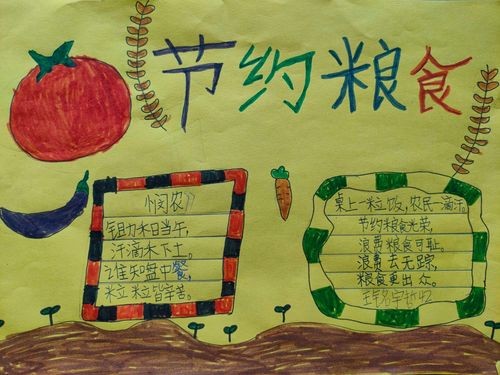 节约粮食
悯农
锄助禾日当午,
汗滴禾下土。
谁知盘中餐,
粒粒皆辛苦。
桌上一粒饭,农民一滴汗。
节约粮食光荣,
浪费粮食可耻。
浪费去无踪,
粮食更出众。